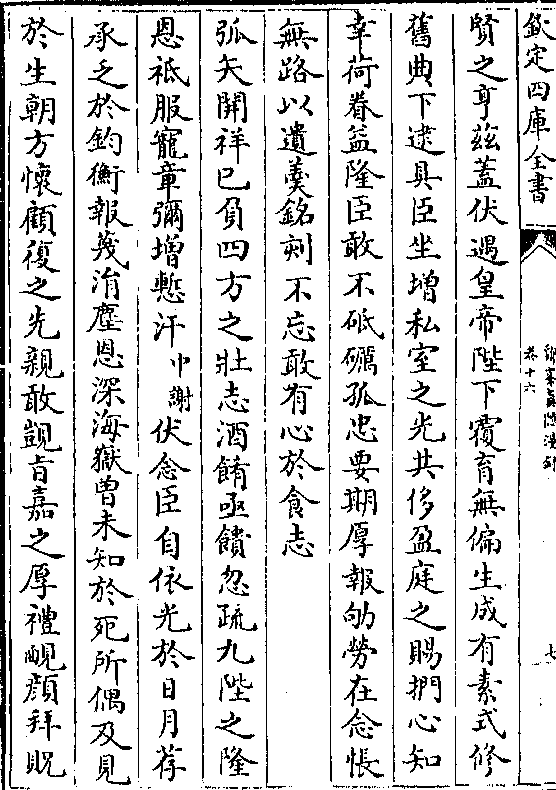 欽定四庫全書
卷十六
七
賢之亨兹蓋伏遇皇帝陛下覆育無偏生成有素式修
舊典下逮具臣坐增私室之光共侈盈庭之賜捫心知
幸荷眷益隆臣敢不砥礪孤忠要期厚報劬勞在念悵
無路以遺羮銘刻不忘敢有心於食志
弧矢開祥已負四方之壯志酒餚亟饋忽疏九陛之隆
恩祗服寵章彌增慙汗中謝伏念臣自依光於日月荐
承乏於鈞衡報蔑涓塵恩深海嶽曾未知於死所偶及見
於生朝方懷顧復之先親敢覬旨嘉之厚禮靦顔拜貺